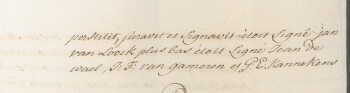 perstitit, juravit et signavit etoit signé: jan
van Loock plus bas etoit signé Jean de
wael, J. F. van gameren et G E Kannekens